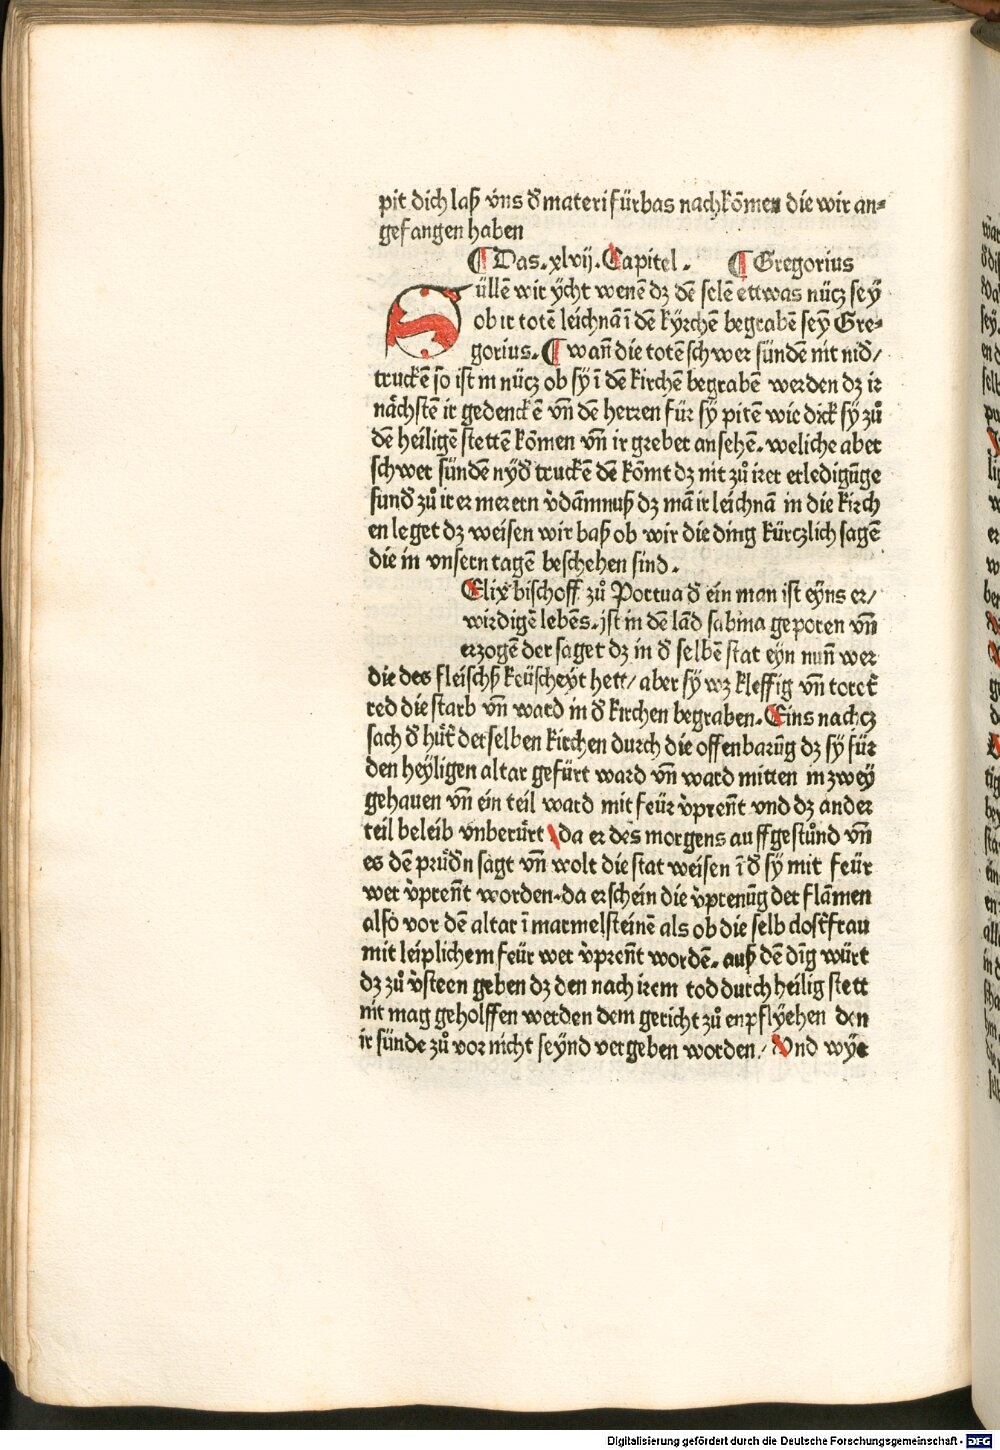 pit dich laß vns d̕ materi fürbas nachkōmen die wir an⸗
gefangen haben
¶ Das .xlvij. Capitel . ¶ Gregorius
Süllē wir ycht wenē dz dē selē ettwas nücz sey
ob ir totē leichnā ī dē kyrchē begrabē sey Gre⸗
gorius. ¶ wañ die totē schwer sündē nit nid̕/
truckē so ist in nücz ob sy ī dē kirchē begrabē werden dz ir
nächstē ir gedenckē vn̄ dē herren für sy pitē wie dick sy zů
dē heiligē stettē kōmen vn̄ ir greber ansehē. weliche aber
schwer sündē nyd̕ truckē dē kōmt dz nit zů irer erledigūge
sund̕ zů irer merern v̓dāmnuß dz mā ir leichnā in die kirch
en leget dz weisen wir baß ob wir die ding kürczlich sagē
die in vnsern tagē beschehen sind .
Elix bischoff zů Portua d̕ ein man ist eyns er/
wirdigē lebēs. jst in dē lād sabina geporen vn̄
erzogē der saget dz in d̕ selbē stat eyn nunn wer
die des fleischß keüscheyt hett/ aber sy wz kleffig vn̄ toret̄
red die starb vn̄ ward in d̕ kirchen begraben. Eins nachcz
sach d̕ hüt̄ der selben kirchen durch die offenbarūg dz sy für
den heyligen altar gefürt ward vn̄ ward mitten in zwey
gehauen vn̄ ein teil ward mit feür v̓prent̄ vnd dz ander
teil beleib vnberürt da er des morgens auffgestůnd vn̄
es dē prüd̕n sagt vn̄ wolt die stat weisen ī d̕ sy mit feür
wer v̓prent̄ worden. da erschein die v̓prenūg der flāmen
also vor dē altar ī marmelsteinē als ob die selb closterfrau
mit leiplichem feür wer v̓prent̄ wordē. auß dē dīg würt
dz zů v̓steen geben dz den nach irem tod durch heilig stett
nit mag geholffen werden dem gericht zů enpflyehen den
ir sünde zů vor nicht seynd vergeben worden / Vnd wye
Digitalisierung gefördert durch die Deutsche Forschungsgemeinschaft - DFG